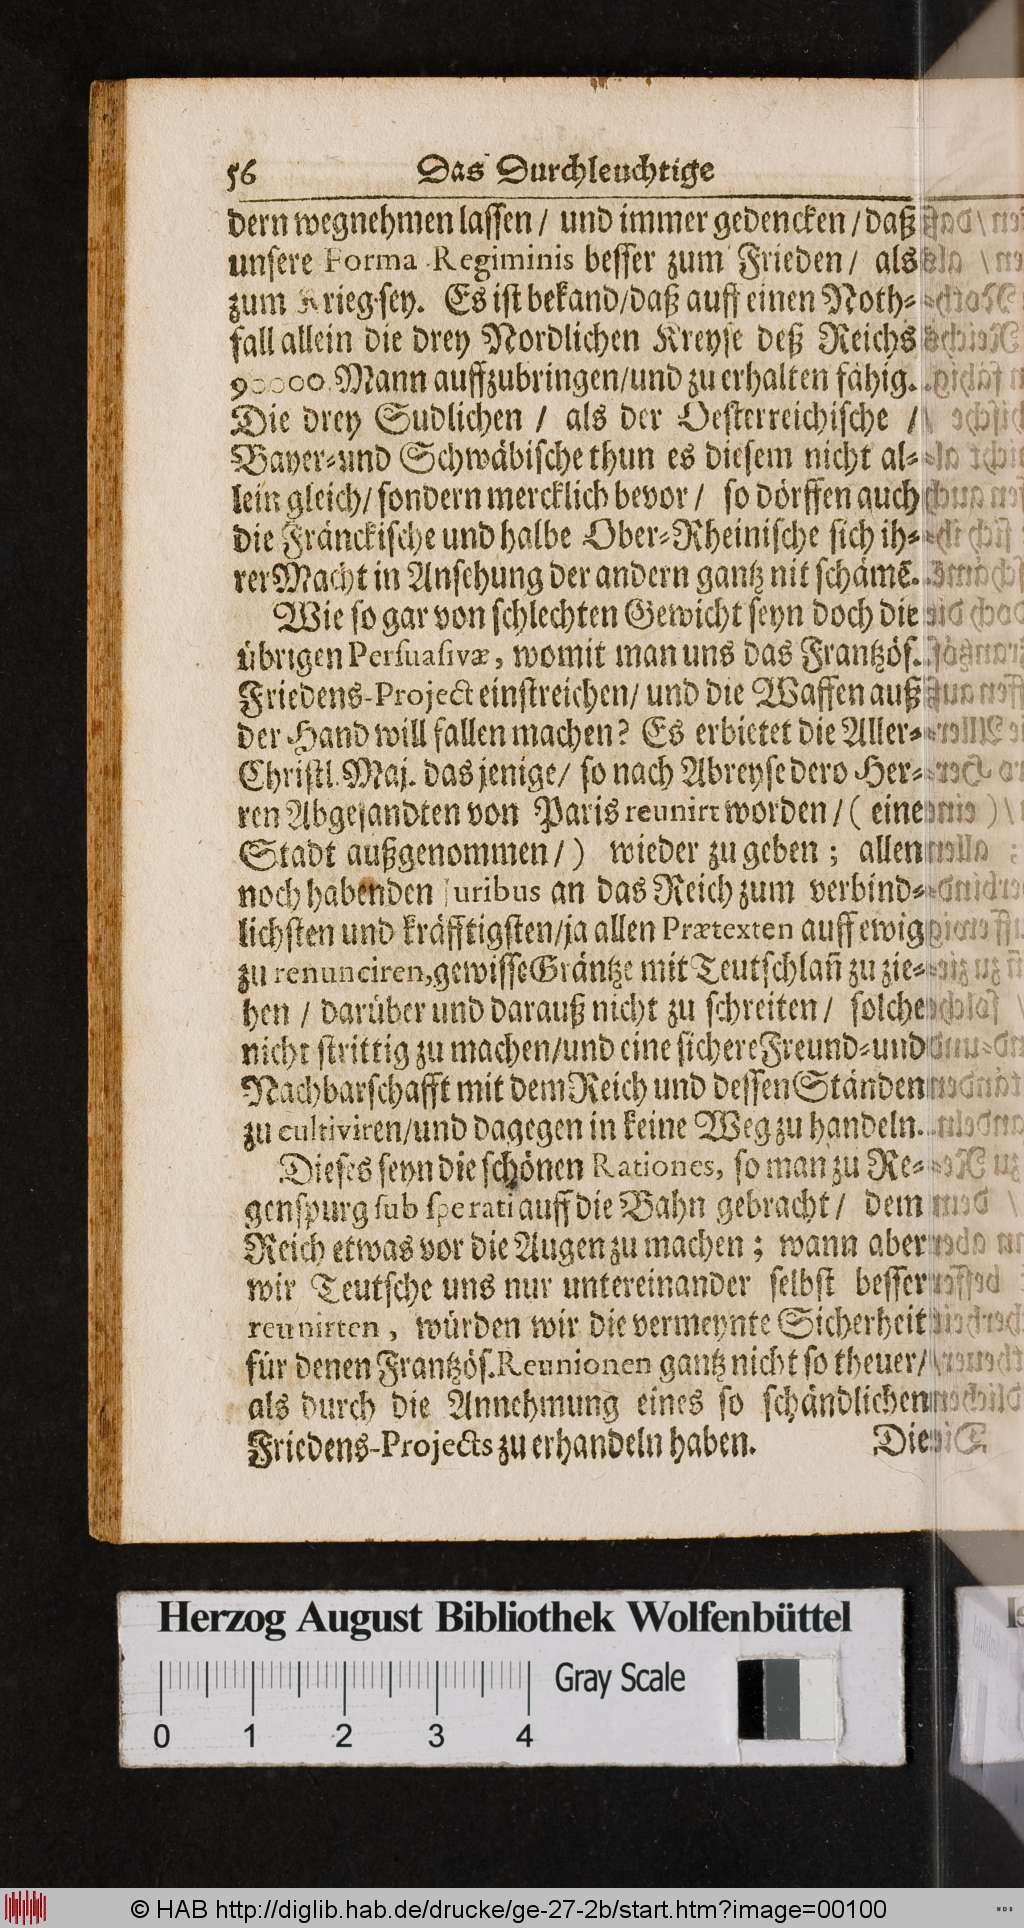 56 Das Durchleuchtige
dern wegnehmen lassen / und immer gedencken / daß
unsere Forma Regiminis besser zum Frieden / als
zum Krieg sey. Es ist bekand / daß auff einen Noth-
fall allein die drey Nordlichen Kreyse deß Reichs
90000 Mann auffzubringen / und zu erhalten fähig.
Die drey Sudlichen / als der Oesterreichische /
Bayer- und Schwäbische thun es diesem nicht al-
lein gleich / sondern mercklich bevor / so dörffen auch
die Fränckische und halbe Ober-Rheinische sich ih-
rer Macht in Ansehung der andern gantz nit schämē.
Wie so gar von schlechten Gewicht seyn doch die
übrigen Persuasivæ, womit man uns das Frantzös.
Friedens-Project einstreichen / und die Waffen auß
der Hand will fallen machen? Es erbietet die Aller-
Christl. Maj. das jenige / so nach Abreyse dero Her-
ren Abgesandten von Paris reunirt worden / ( eine
Stadt außgenommen / ) wieder zu geben ; allen
noch habenden Juribus an das Reich zum verbind-
lichsten und kräfftigsten / ja allen Prætexten auff ewig
zu renunciren, gewisse Gräntze mit Teutschlañ zu zie-
hen / darüber und darauß nicht zu schreiten / solche
nicht strittig zu machen / und eine sichere Freund- und
Nachbarschafft mit dem Reich und dessen Ständen
zu cultiviren / und dagegen in keine Weg zu handeln.
Dieses seyn die schönen Rationes, so man zu Re-
genspurg sub spe rati auff die Bahn gebracht / dem
Reich etwas vor die Augen zu machen ; wann aber
wir Teutsche uns nur untereinander selbst besser
reunirten , würden wir die vermeynte Sicherheit
für denen Frantzös. Reunionen gantz nicht so theuer /
als durch die Annehmung eines so schändlichen
Friedens-Projects zu erhandeln haben. Die
Herzog August Bibliothek Wolfenbüttel
Gray Scale
0 1 2 3 4
© HAB http://diglib.hab.de/drucke/ge-27-2b/start.htm?image=00100